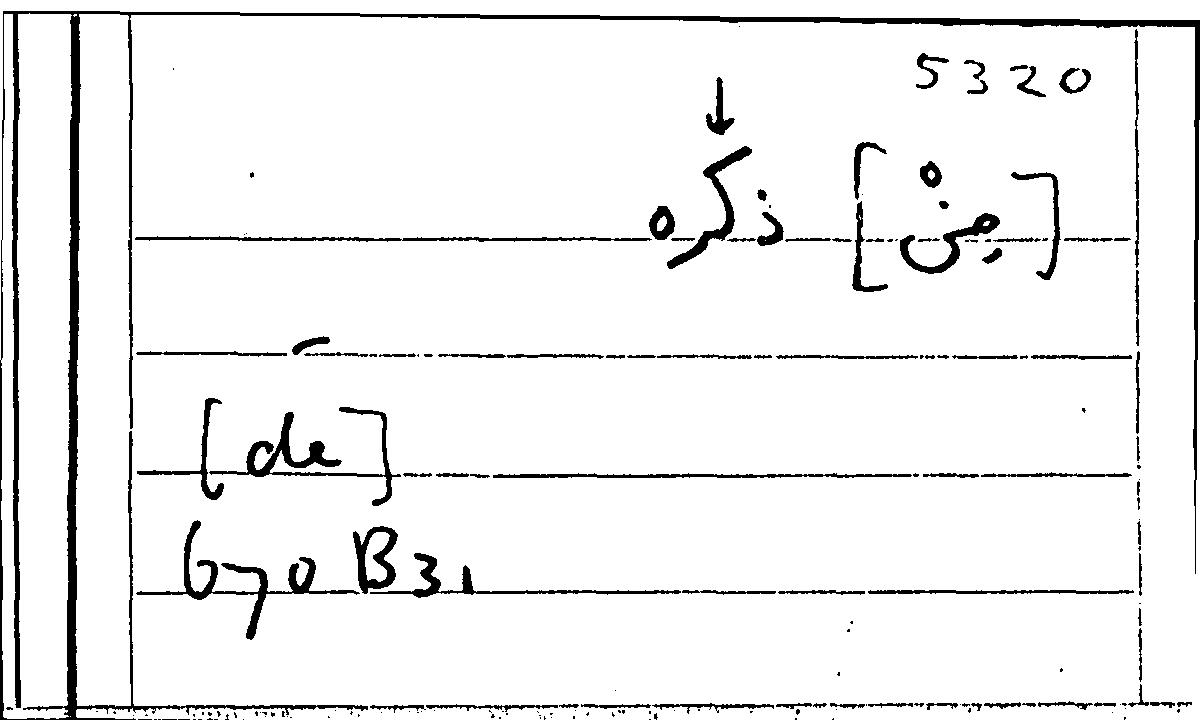 5320
↓
ذكره
[de]
670 B31